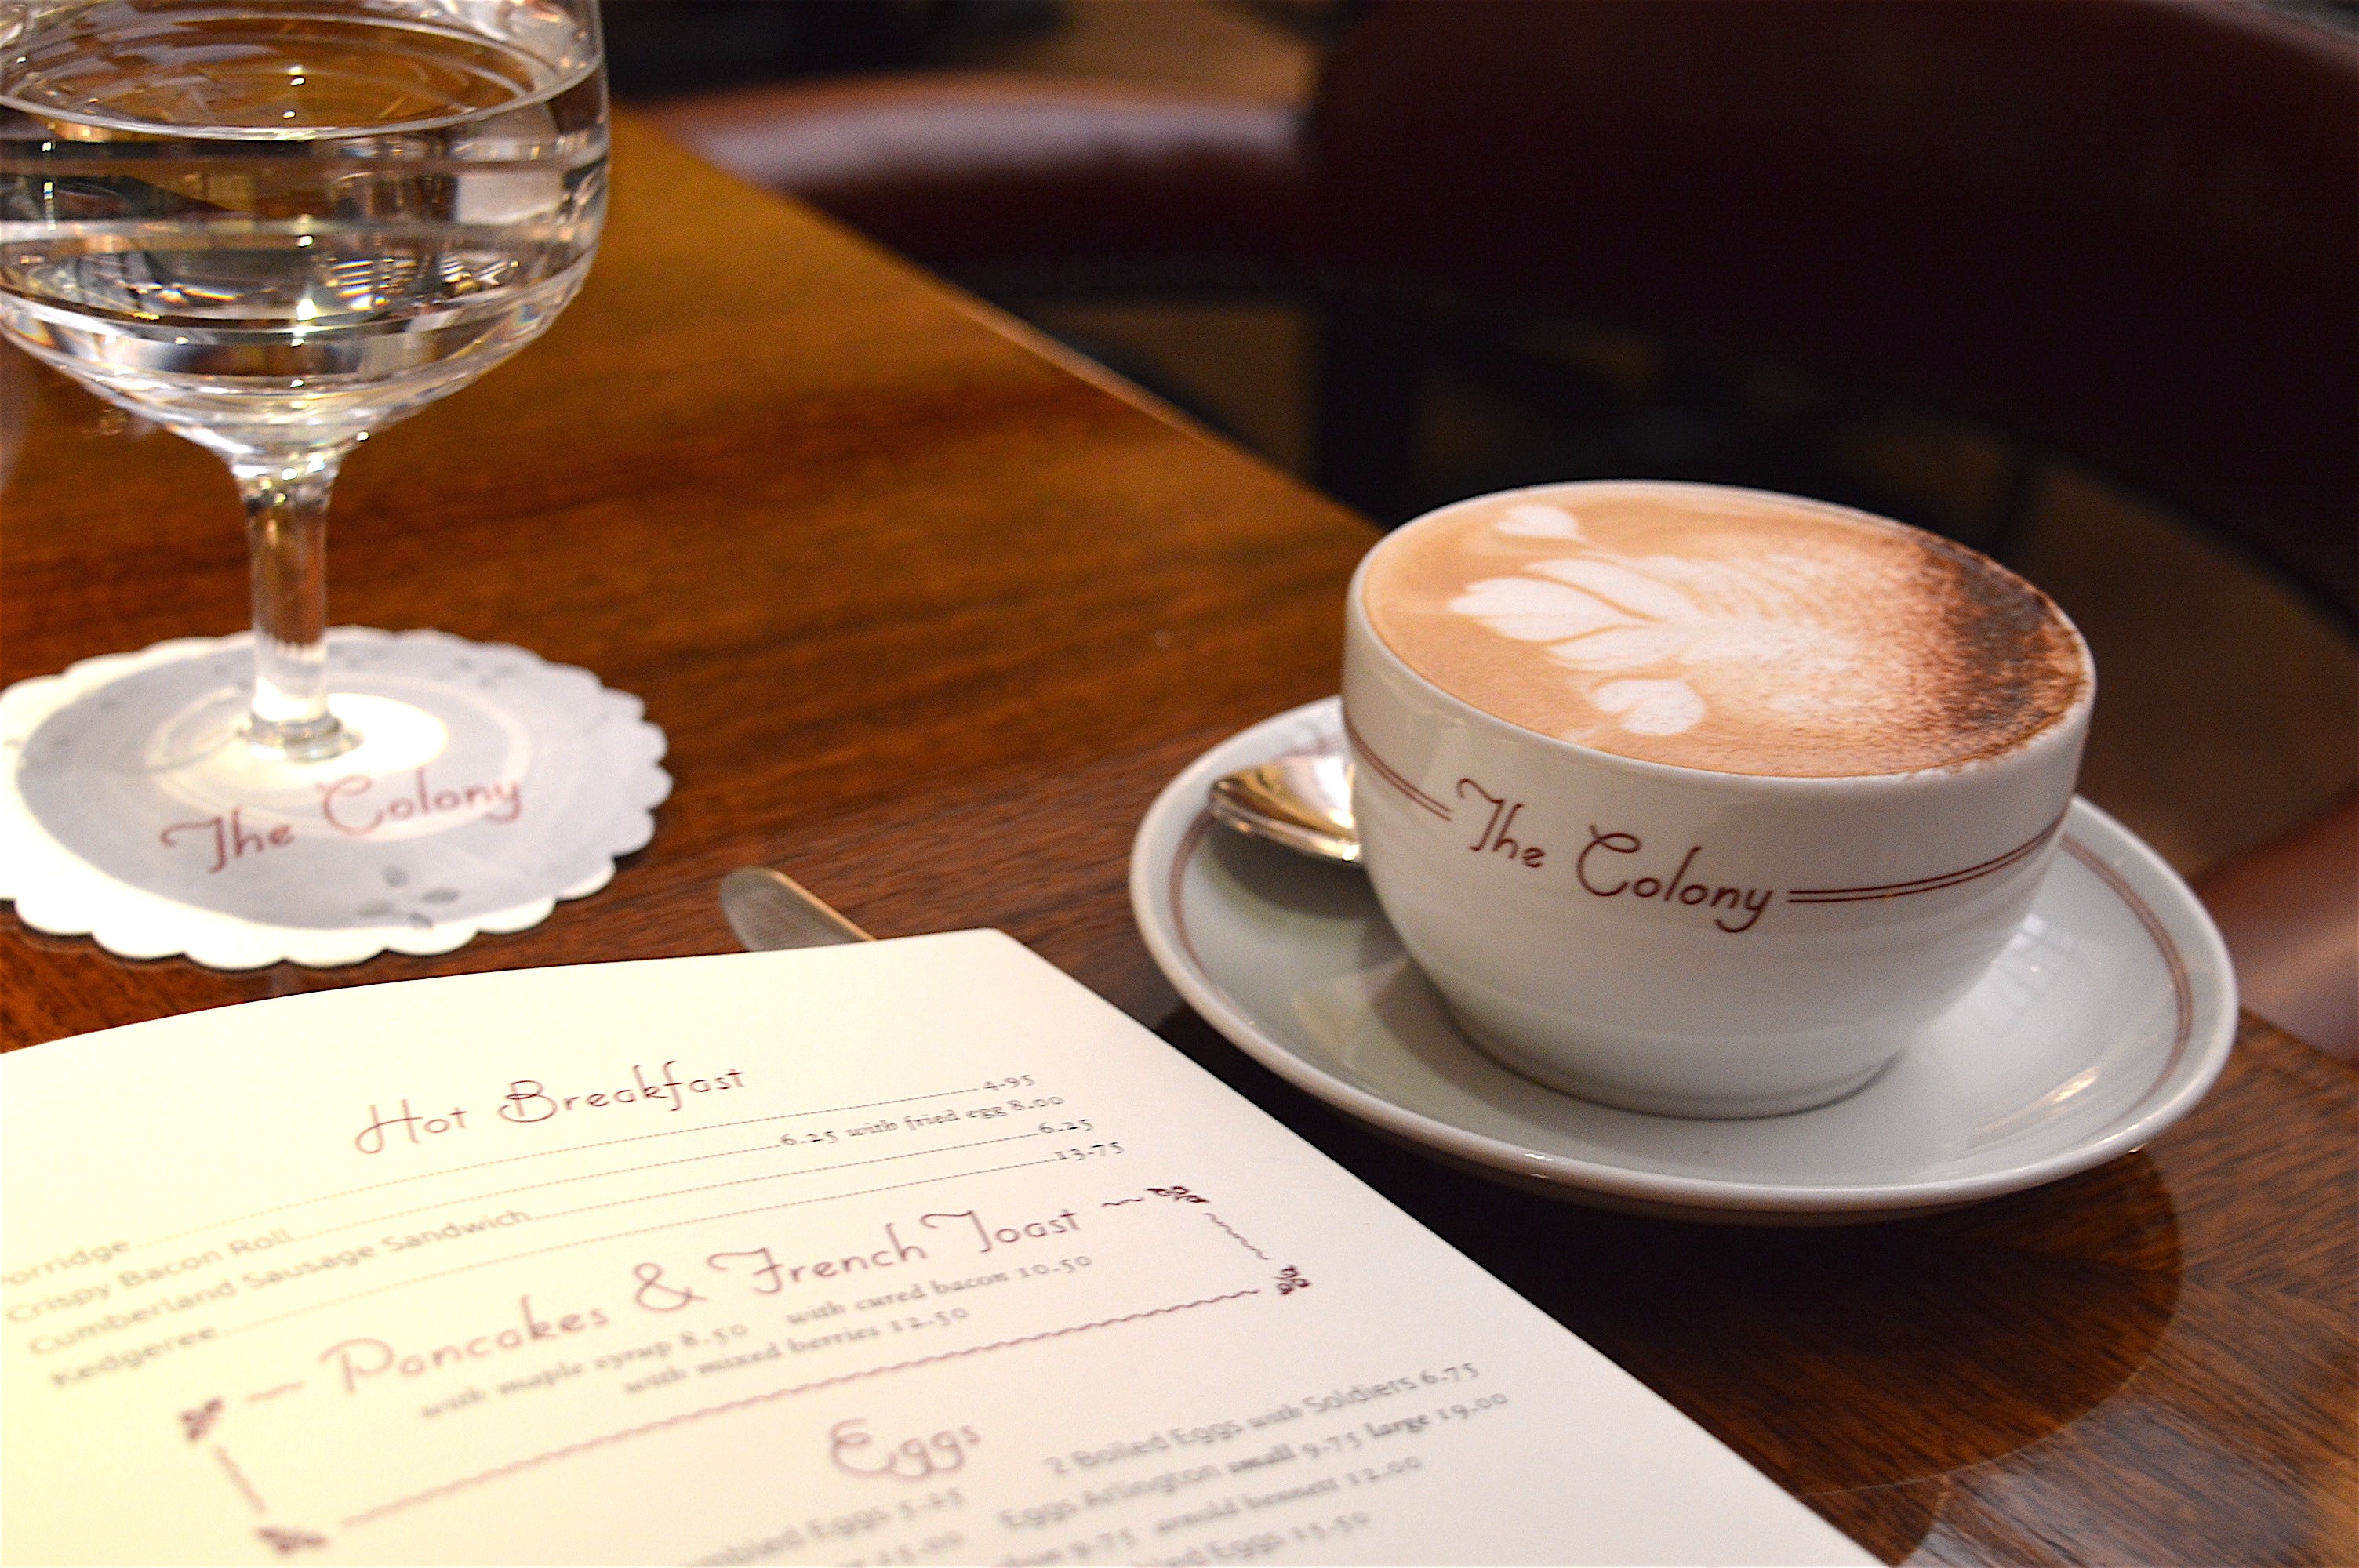 The Colony
The Colony
Hot Breakfast
orridge 4.95
Crispy Bacon Roll 6.25 with fried egg 8.00
Cumberland Sausage Sandwich 6.25
Kedgeree 13.75
Pancakes & French Toast
with maple syrup 8.50 with cured bacon 10.50
with mixed berries 12.50
Eggs
2 Boiled Eggs with Soldiers 6.75
mbled Eggs 5.25 Eggs Arlington small 9.75 large 19.00
15.00 9.75 arnold bennett 12.00
Eggs 15.50